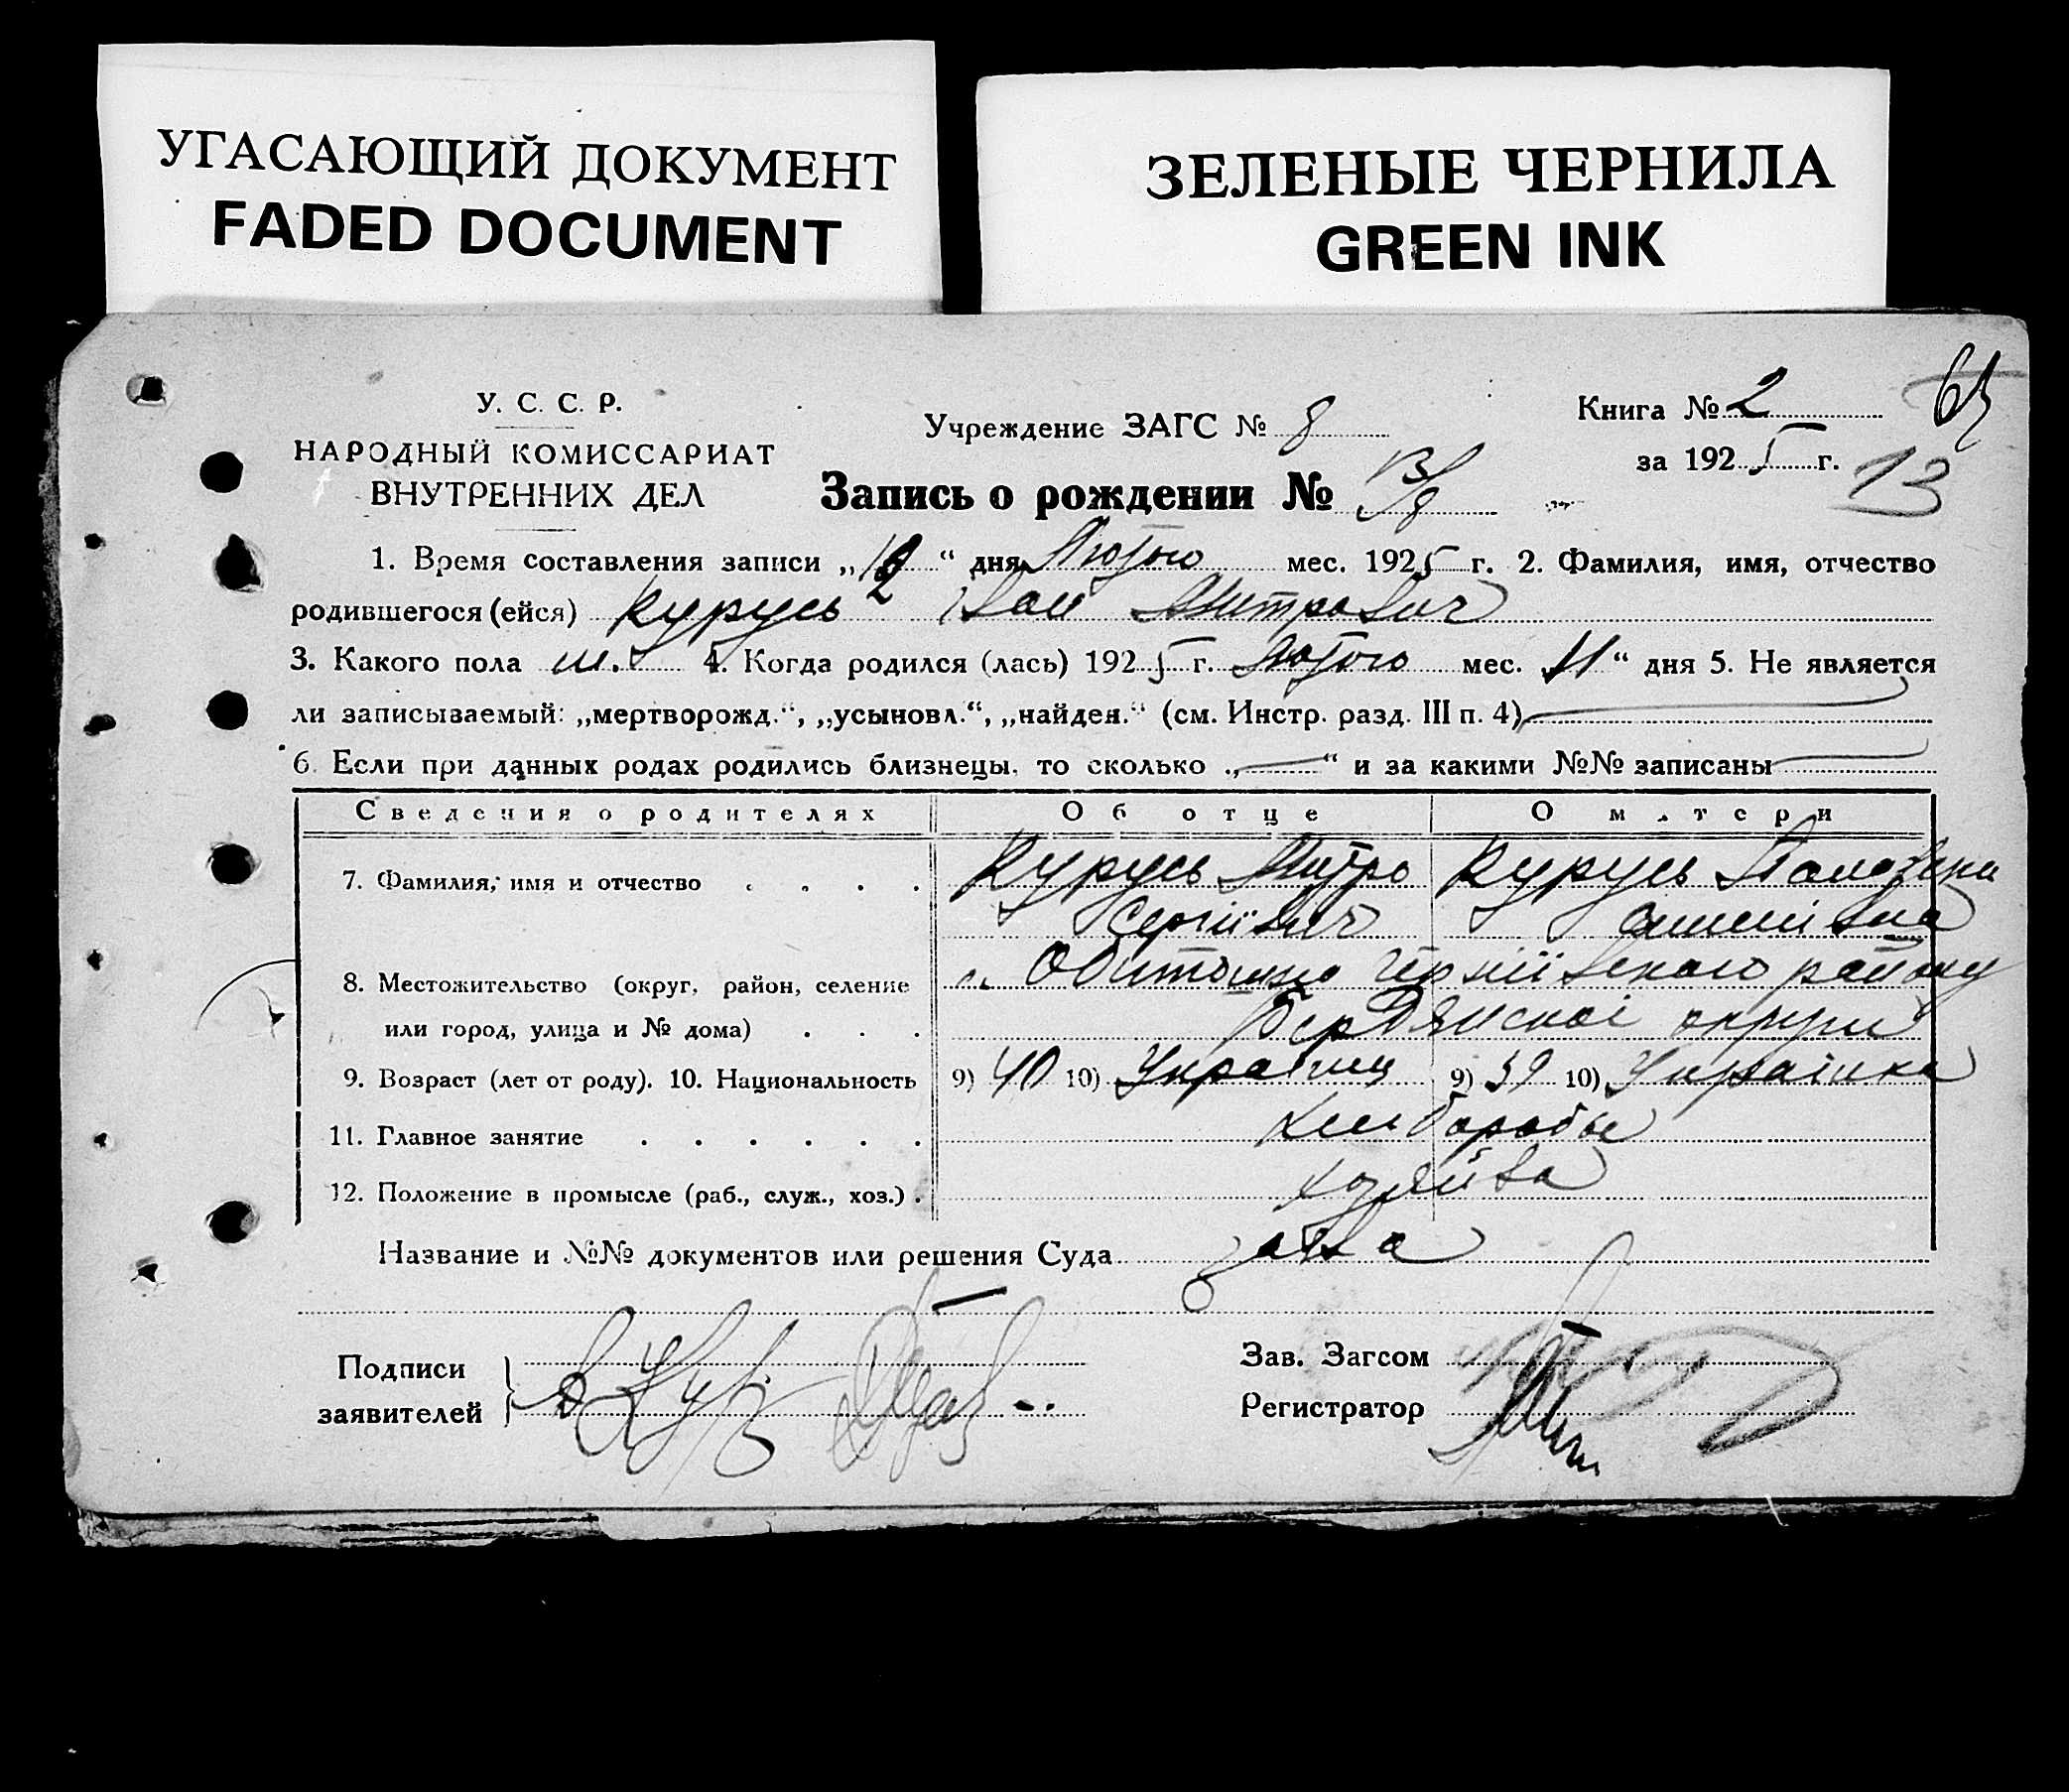 УГАСАЮЩИЙ ДОКУМЕНТ
FADED DOCUMENT
ЗЕЛЕНЫЕ ЧЕРНИЛА
GREEN INK
У. С. С. Р.
НАРОДНЫЙ КОМИССАРИАТ
ВНУТРЕННИХ ДЕЛ
Учреждение ЗАГС № 8
Книга № 2
за 1925 г.
13
Запись о рождении № 13/8
1. Время составления записи „12“ дня Лютого мес. 1925 г. 2. Фамилия, имя, отчество
родившегося (ейся) Курусь Іван Митрович
3. Какого пола 4. Когда родился (лась) 1925 г. Лютого мес. 11“ дня 5. Не является
ли записываемый: „мертворожд.“, „усыновл.“, „найден.“ (см. Инстр. разд. III п. 4)
6. Если при данных родах родились близнецы, то сколько „—“ и за какими №№ записаны
Сведения о родителях Об отце О матери
7. Фамилия, имя и отчество Курусь Митро Курусь
Сергіївич
8. Местожительство (округ, район, селение с. Обиточно району
или город, улица и № дома) Бердянскоі округи
9. Возраст (лет от роду). 10. Национальность 9) 40 10) Українец 9) 39 10) Українка
11. Главное занятие хлібороби
12. Положение в промысле (раб., служ., хоз.) хозяйва
Название и №№ документов или решения Суда заява
Подписи
заявителей
Зав. Загсом
Регистратор